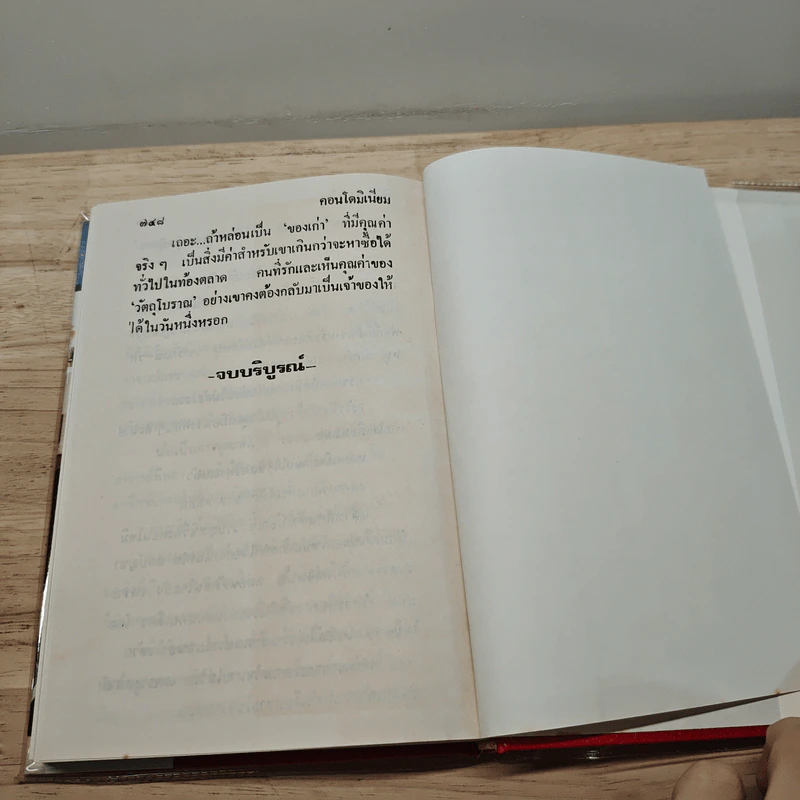 คอนโดมิเนียม
๗๔๘
เถอะ...ถ้าหล่อนเป็น ‘ของเก่า’ ที่มีคุณค่า
จริง ๆ เป็นสิ่งมีค่าสำหรับเขาเกินกว่าจะหาซื้อได้
ทั่วไปในท้องตลาด คนที่รักและเห็นคุณค่าของ
‘วัตถุโบราณ’ อย่างเขาคงต้องกลับมาเป็นเจ้าของให้
ได้ในวันหนึ่งหรอก
-จบบริบูรณ์-